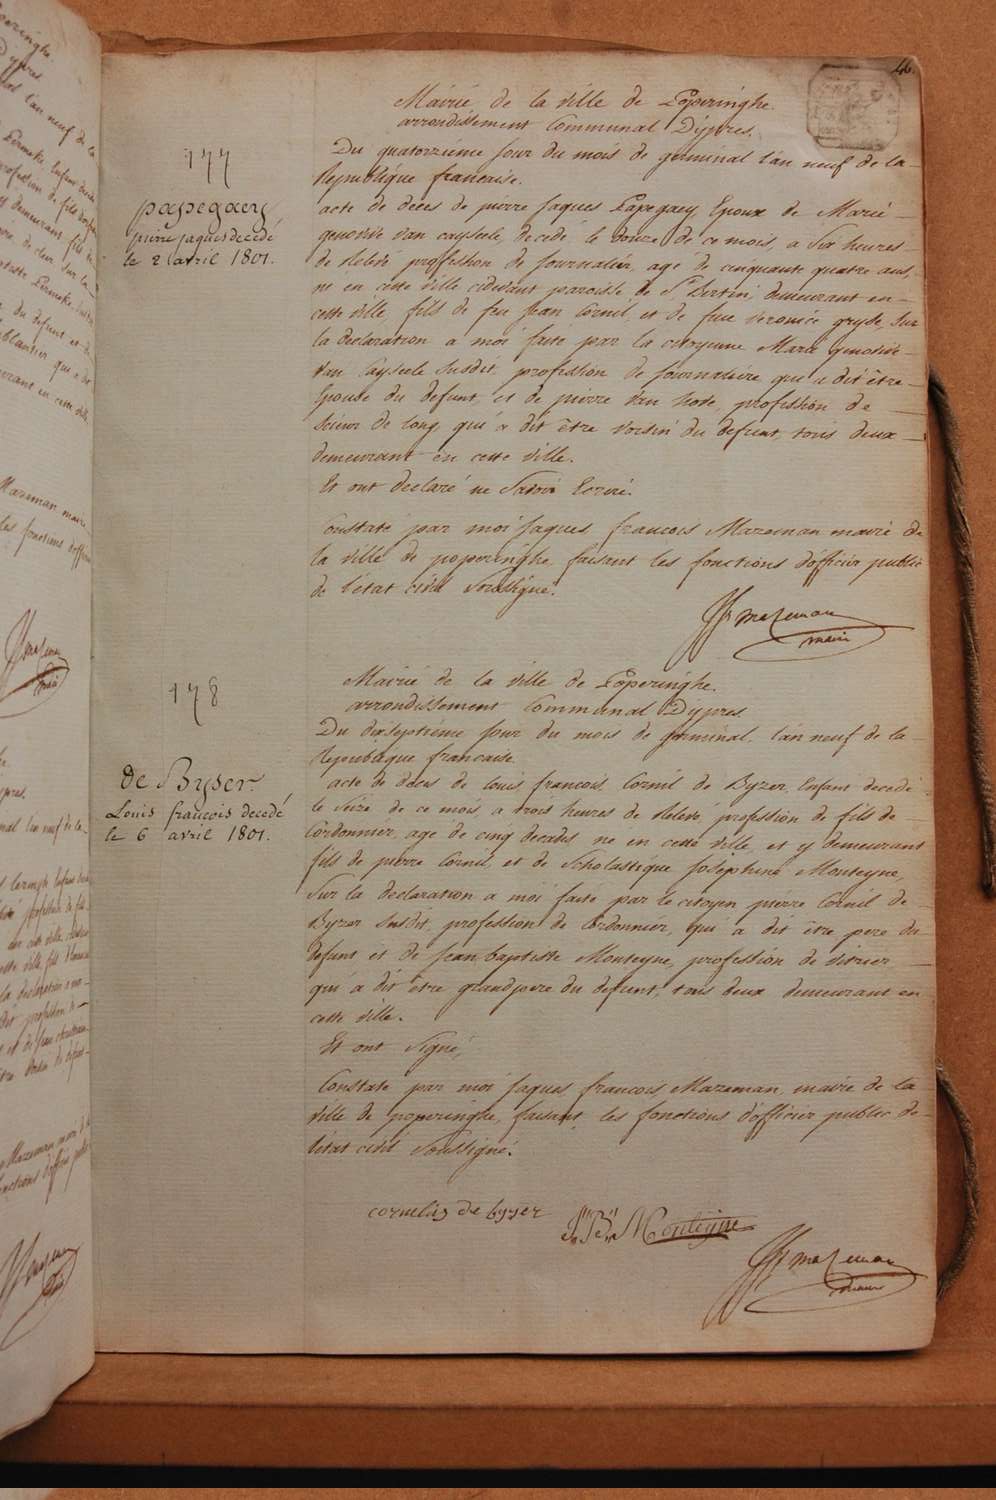 46.
Mairié de la ville de Poperinghe.
arrondissement Communal D'ypres.
177
Du quatorzieme Jour du mois de germinal l'an neuf de la
Republique francaise.
papegaey
pierre jaques decedé
le 2 avril 1801.
acte de deces de pierre Jaques Papegaey Epoux de Marie
genovive van cayseele, decedé le douze de ce mois, a six heures
de relevé profession de Journalier, age de cinquante quatre ans,
né en cette ville cidevant paroisse de St. Bertin, demeurant en
cette ville, fils de feu Jean Cornil, et de feue veronice gryde, Sur
la declaration a moi faite par la citoyenne Marie genovive
Van Cayseele Susdit, profession de Journaliere qui a dit être
Epouse du defunt, et de pierre Van hove, profession de
Scieur de long, qui a dit être voisin du defunt, tous deux
demeurant en cette ville.
Et ont declaré ne Savoir Ecrire.
Constaté par moi Jaques francois Mazeman maire de
la ville de poperinghe, faisant les fonctions d'officier public
de l'etat civil Soussigné.
JF mazeman
maire
178
Mairié de la ville de Poperinghe.
arrondissement Communal D'ypres
Du dixseptieme Jour du mois de germinal l'an neuf de la
Republique francaise
de Byser
Louis francois decedé
le 6 avril 1801.
acte de deces de louis francois Cornil de Byzer, Enfant decedé
le seize de ce mois, a trois heures de relevé, profession de fils de
Cordonnier, age de cinq decades né en cette ville, et y demeurant
fils de pierre Cornil, et de Scholastique Josephine Monteyne,
Sur la declaration a moi faite par le citoyen pierre Cornil de
Byzer Susdit, profession de Cordonnier, qui a dit être pere du
defunt et de Jean baptiste Monteyne, profession de vitrier
qui a dit être grandpere du defunt, tous deux demeurant en
cette ville.
Et ont Signé,
Constaté par moi Jaques francois Mazeman, maire de la
ville de poperinghe, faisant les fonctions d'officier public de
l'etat civil Soussigné.
cornelis de byser
J. B. Monteyne
JF mazeman
maire